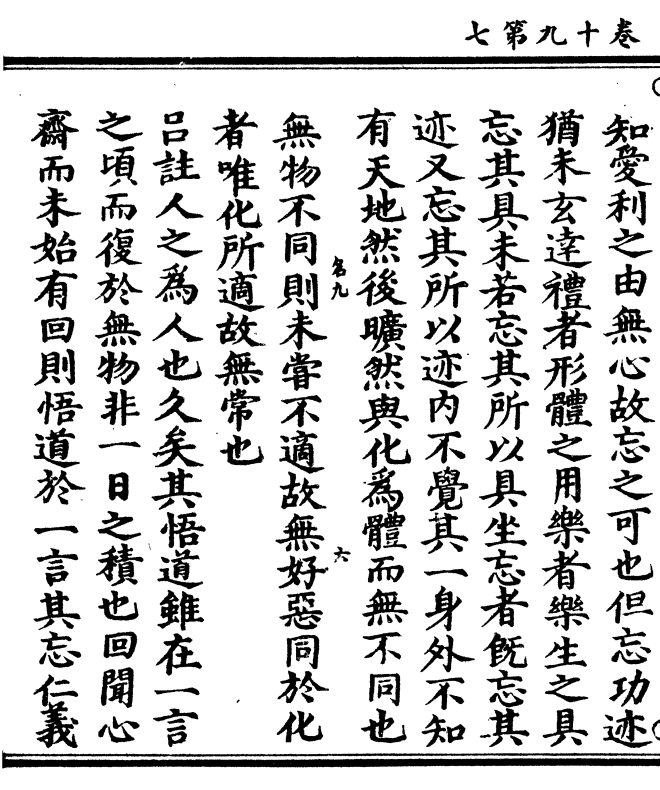 卷十九第七
知愛利之由無心故忘之可也但忘功迹
猶未玄達禮者形體之用樂者樂生之具
忘其具未若忘其所以具坐忘者旣忘其
迹又忘其所以迹内不覺其一身外不知
有天地然後曠然與化爲體而無不同也
名九
六
無物不同則未嘗不適故無好惡同於化
者唯化所適故無常也
吕註人之爲人也久矣其悟道雖在一言
之頃而復於無物非一日之積也回聞心
齋而未始有回則悟道於一言其忘仁義